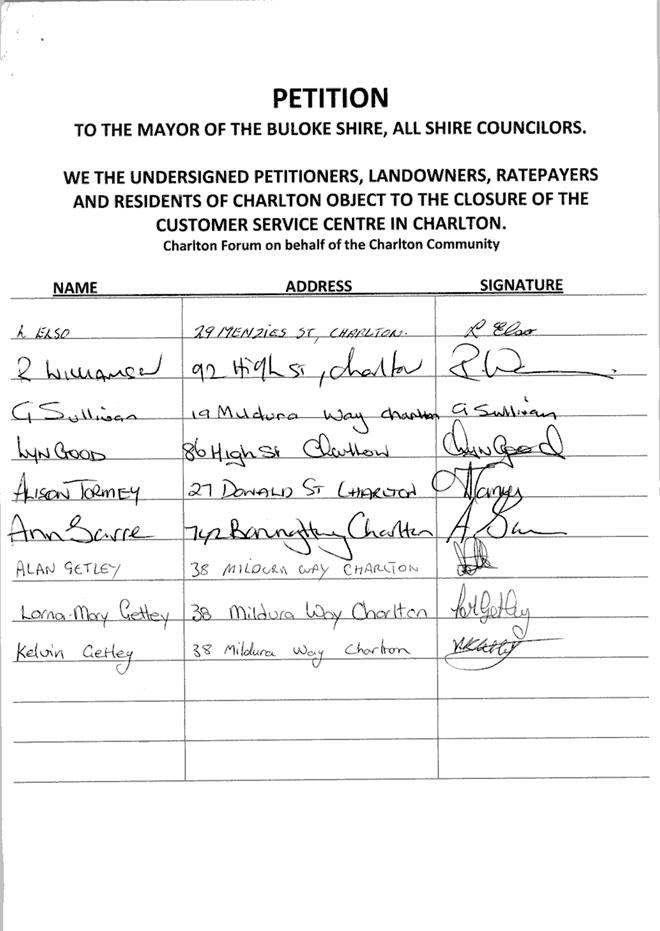 PETITION
TO THE MAYOR OF THE BULOKE SHIRE, ALL SHIRE COUNCILORS.
WE THE UNDERSIGNED PETITIONERS, LANDOWNERS, RATEPAYERS
AND RESIDENTS OF CHARLTON OBJECT TO THE CLOSURE OF THE
CUSTOMER SERVICE CENTRE IN CHARLTON.
Charlton Forum on behalf of the Charlton Community
NAME ADDRESS SIGNATURE
ELSO 29 MENZIES ST, CHARLTON. Elso
R WILLIAMSON 92 High St, Charlton
G Sullivan 19 Mildura Way Charlton G Sullivan
LYN GOOD 86 High St Charlton Lyn Good
ALISON TORMEY 27 DONALD ST CHARLTON
Ann Charlton
ALAN GETLEY 38 MILDURA WAY CHARLTON
Lorna-Mary Getley 38 Mildura Way Charlton Getley
Kelvin Getley 38 Mildura Way Charlton